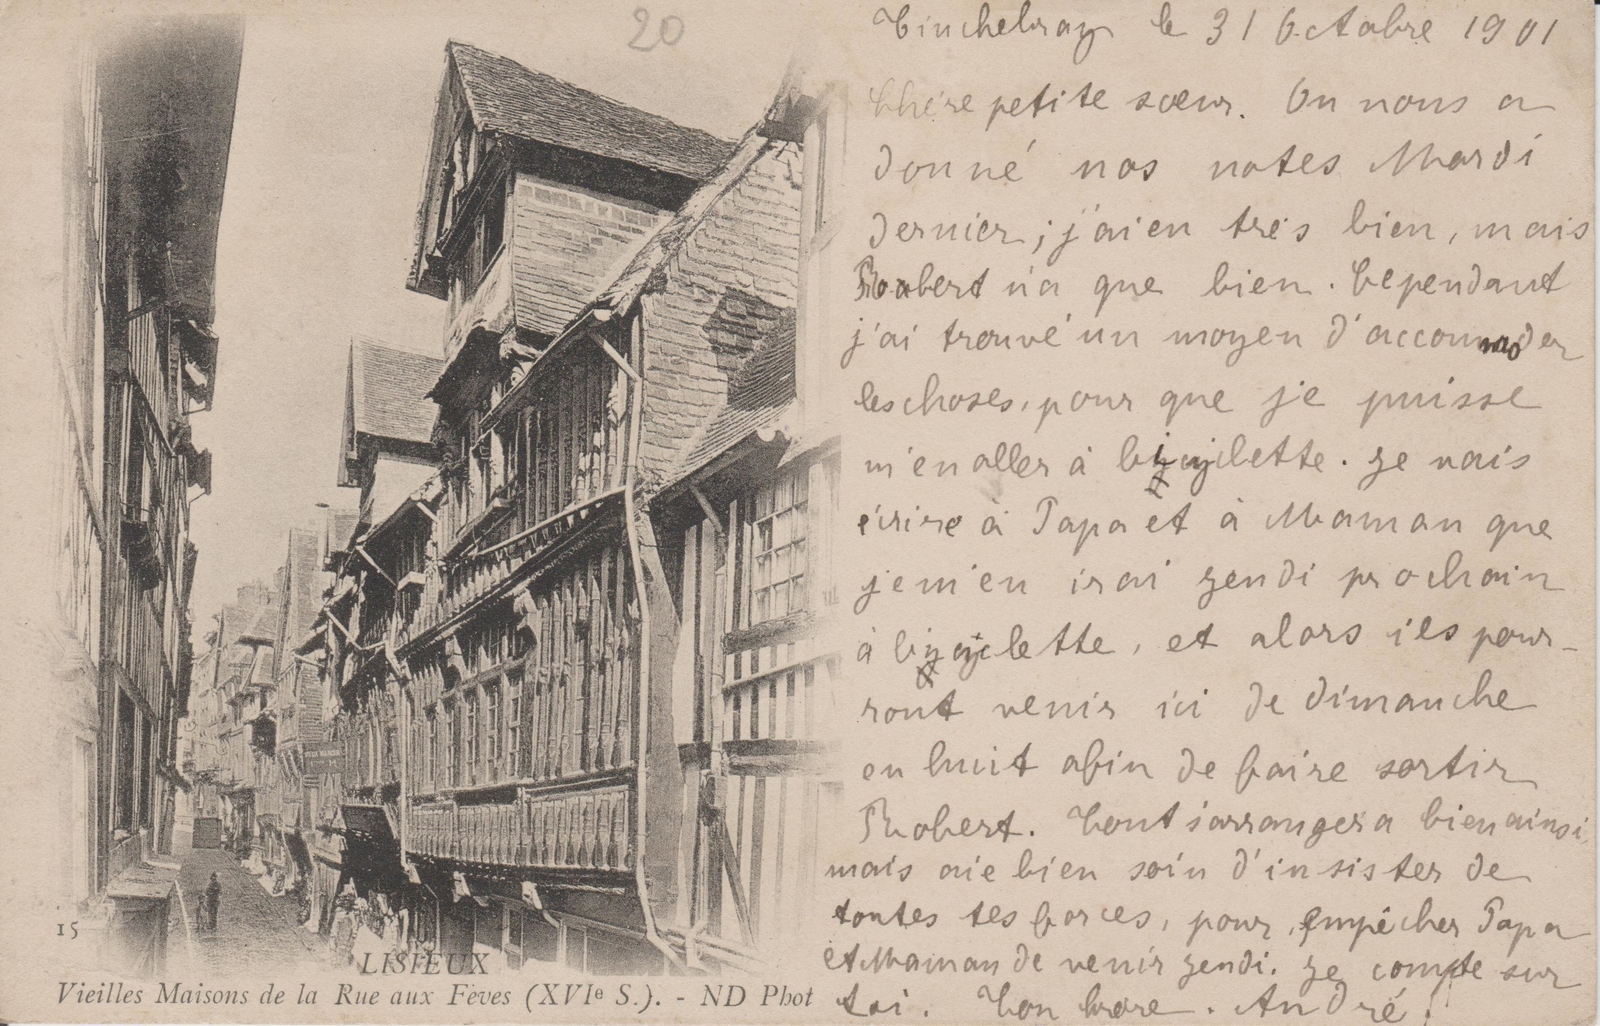 20
Tinchebray le 31 Octobre 1901
Chère petite sœur. On nous a
donné nos notes Mardi
dernier; j'ai eu très bien, mais
Robert n'a que bien. Cependant
j'ai trouvé un moyen d'accommoder
les choses, pour que je puisse
m'en aller à bicyclette. Je vais
écrire à Papa et à Maman que
je m'en irai Jeudi prochain
à bicyclette, et alors ils pour-
ront venir ici de dimanche
en huit afin de faire sortir
Robert. Tout s'arrangera bien ainsi,
mais aie bien soin d'insister de
toutes tes forces, pour empêcher Papa
et Maman de venir Jeudi. Je compte sur
toi. Ton frère. André.
15
LISIEUX
Vieilles Maisons de la Rue aux Fèves (XVIe S.). - ND Phot